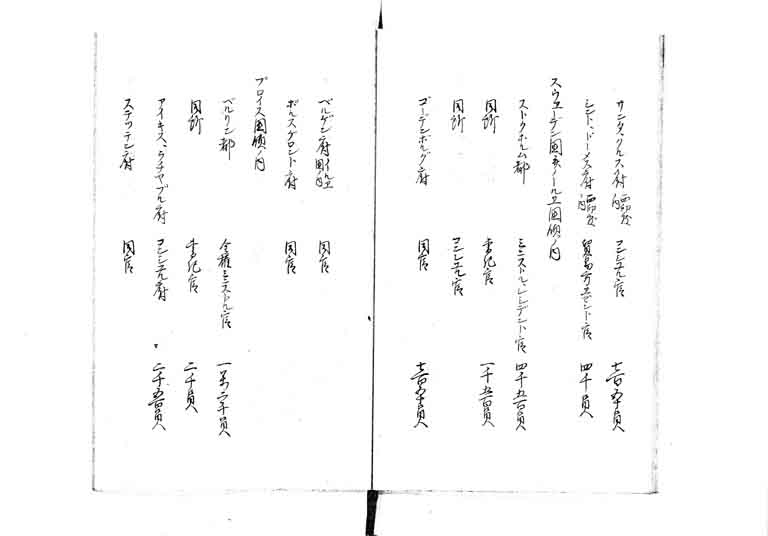 サンタ、クルス府 コンシュル官 七百五十員
シント、トーマス府 貿易方エゼント官 四千員
スウエーデン国 ノールエ国領ノ内
ストクホルム都 ミニストル、レシデント官 四千五百員
同所 書記官 一千五百員
同所 コンシュル官
ゴーテンボルグ府 同官 七百五十員
ベルゲン府 同官
ポルスグロント府 同官
プロイス国領ノ内
ベルリン都 全権ミニストル官 一万二千員
同所 書記官 二千員
アイキス、ラチャプル府 コンシュル官 二千五百員
ステッテン府 同官